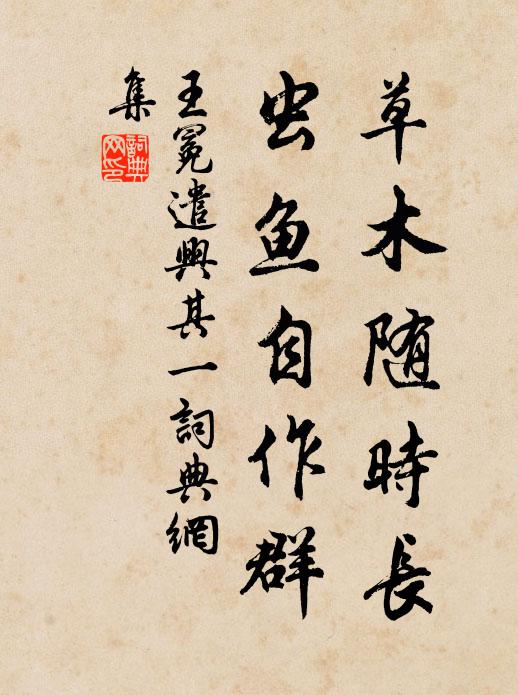 草木随時長
虫鱼自作群
王冕遣興其一詞典網
集
詞典
网印